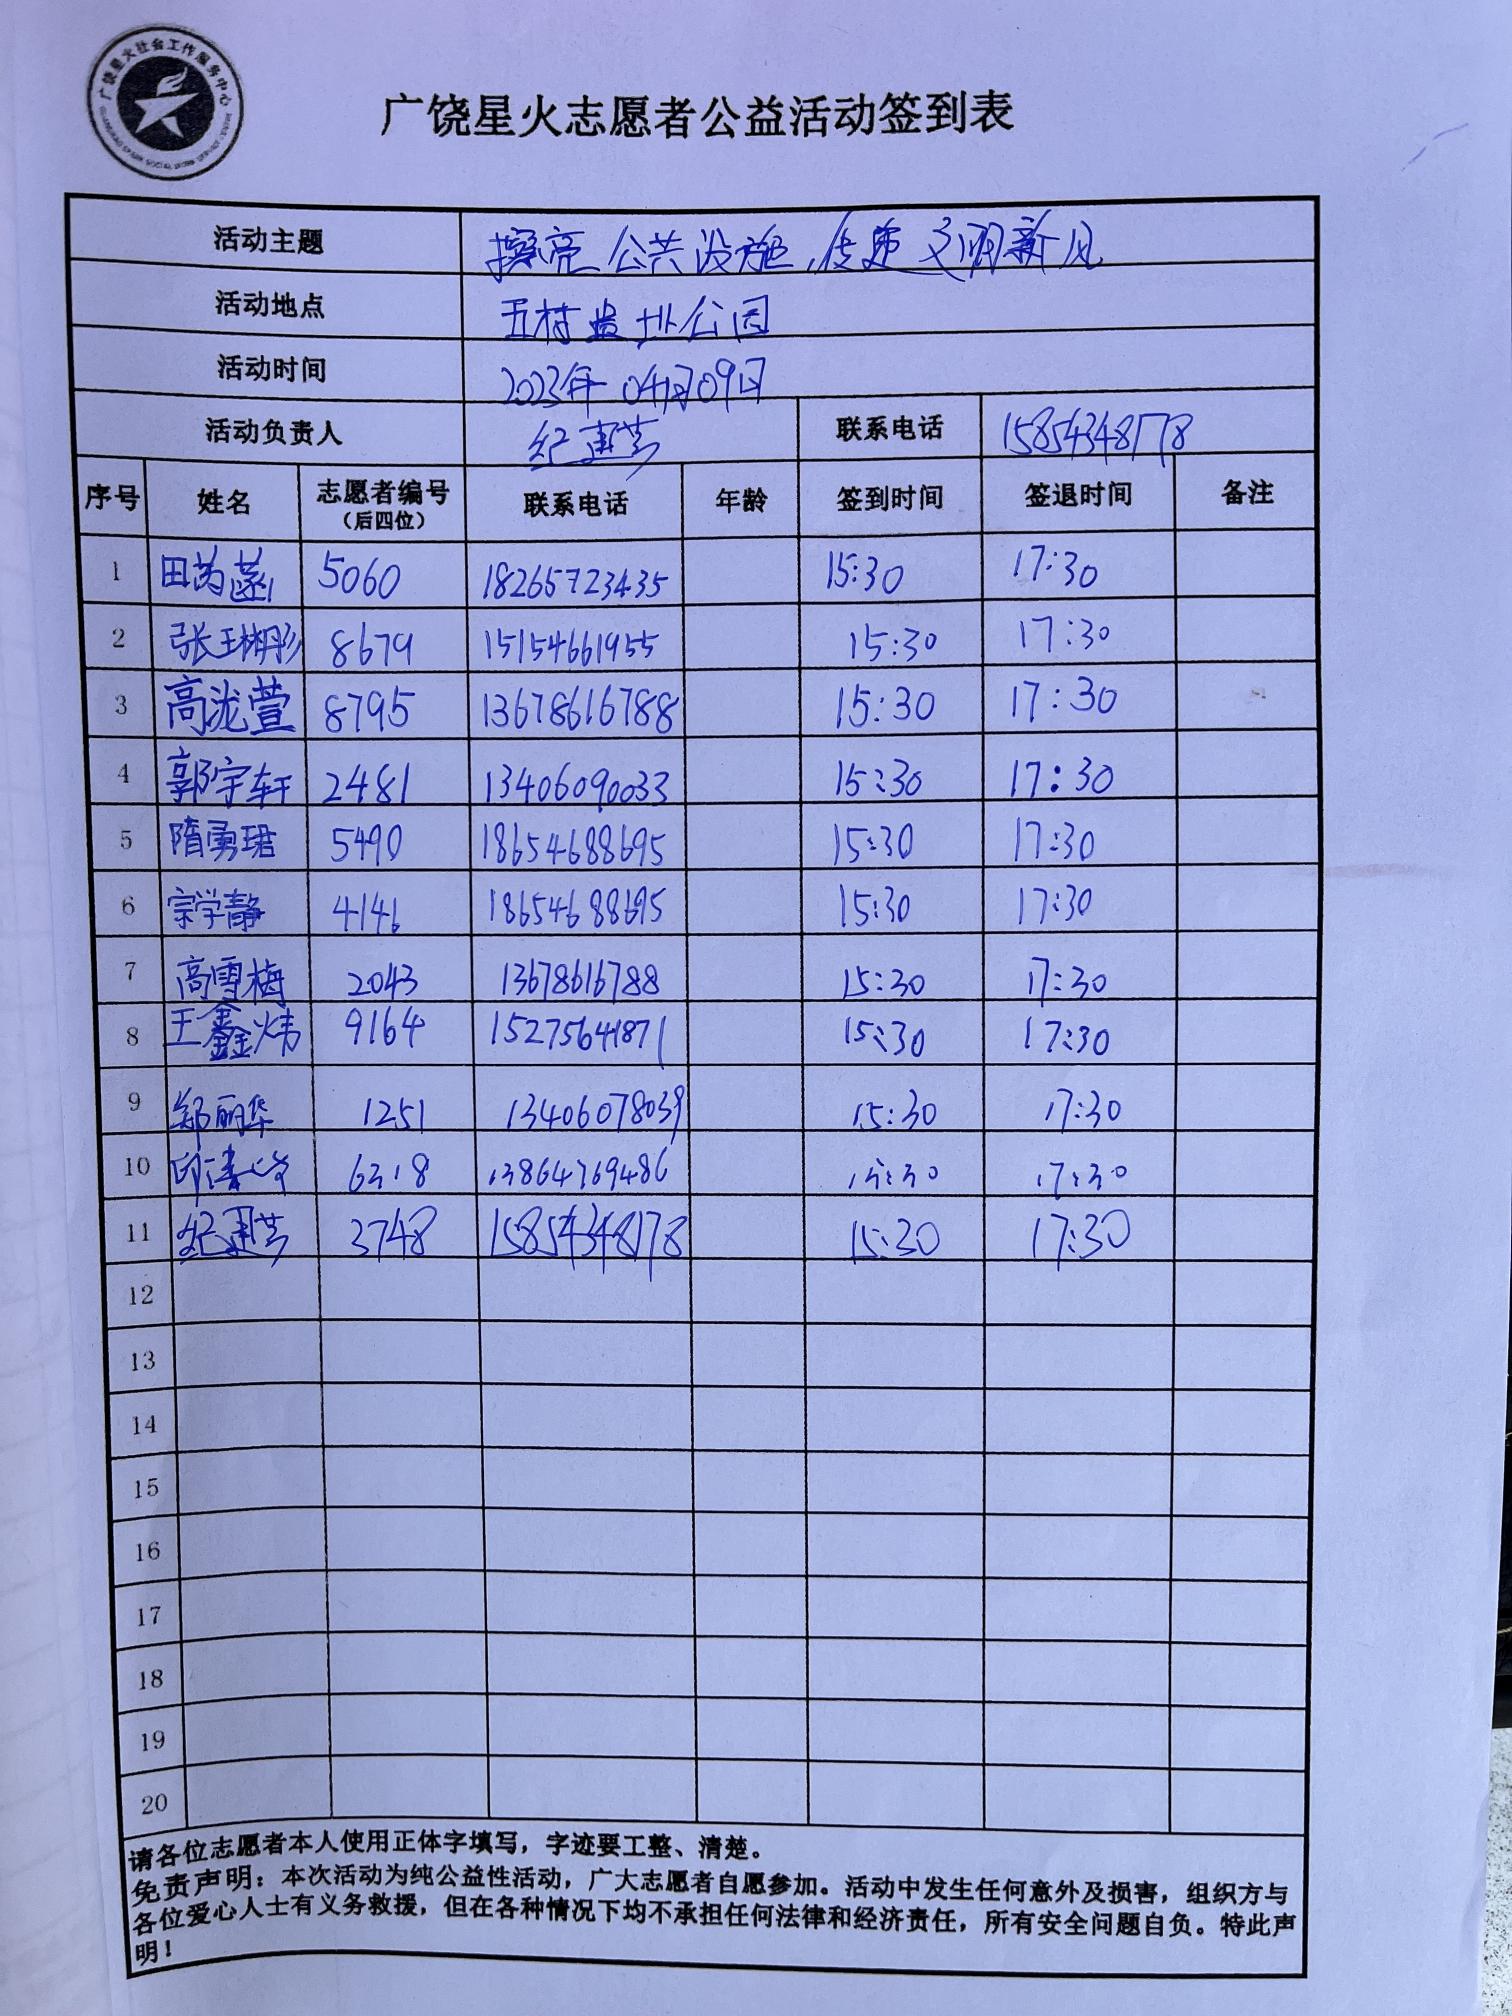 广饶星火社会工作服务中心
广饶星火志愿者公益活动签到表
活动主题 擦亮公共设施,传递文明新风
活动地点 五村遗址公园
活动时间 2023年04月09日
活动负责人 纪建芸 联系电话 15854348178
序号 姓名 志愿者编号（后四位） 联系电话 年龄 签到时间 签退时间 备注
1 田芮菡 5060 18265723435 15:30 17:30
2 张王彬彤 8679 15154661955 15:30 17:30
3 高泷萱 8795 13678616788 15:30 17:30
4 郭宇轩 2481 13406090033 15:30 17:30
5 隋勇珺 5490 18654688695 15:30 17:30
6 宗学静 4146 18654688695 15:30 17:30
7 高雪梅 2043 13678616788 15:30 17:30
8 王鑫炜 9164 15275641871 15:30 17:30
9 郑丽华 1251 13406078039 15:30 17:30
10 6318 13864769486 15:30 17:30
11 纪建芸 3748 15854348178 15:30 17:30
12
13
14
15
16
17
18
19
20
请各位志愿者本人使用正体字填写，字迹要工整、清楚。
免责声明：本次活动为纯公益性活动，广大志愿者自愿参加。活动中发生任何意外及损害，组织方与
各位爱心人士有义务救援，但在各种情况下均不承担任何法律和经济责任，所有安全问题自负。特此声
明！